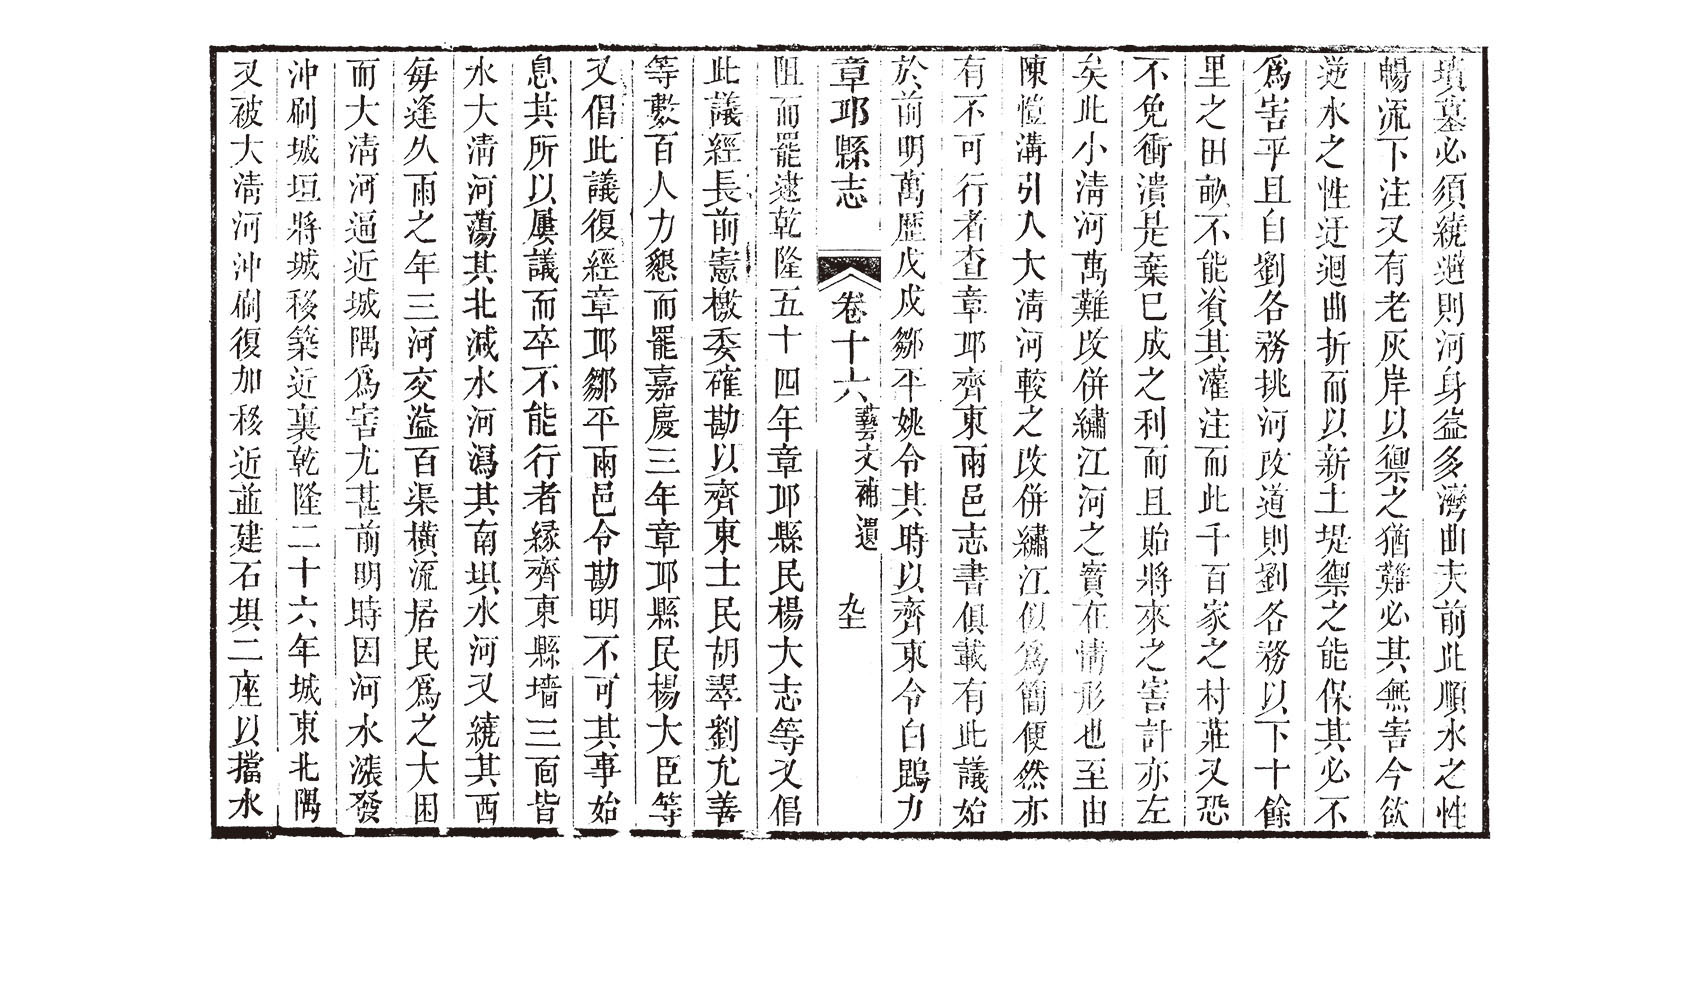 墳墓必須繞避則河身益多灣曲夫前此順水之性
暢流下注又有老灰岸以禦之猶難必其無害今欲
逆水之性迂迴曲折而以新土堤禦之能保其必不
爲害乎且自劉各務挑河改道則劉各務以下十餘
里之田畝不能資其灌注而此千百家之村莊又恐
不免衝潰是棄已成之利而且貽將來之害計亦左
矣此小淸河萬難改併繡江河之實在情形也至由
陳愷溝引入大淸河較之改併繡江似爲簡便然亦
有不可行者查章邱齊東兩邑志書俱載有此議始
於前明萬歷戊戌鄒平姚令其時以齊東令白鵾力
章邱縣志 卷十六藝文補遺 九十
阻而罷逮乾隆五十四年章邱縣民楊大志等又倡
此議經長前憲檄委確勘以齊東士民胡翠劉允善
等數百人力懇而罷嘉慶三年章邱縣民楊大臣等
又倡此議復經章邱鄒平兩邑令勘明不可其事始
息其所以屢議而卒不能行者緣齊東縣墻三面皆
水大淸河蕩其北減水河瀉其南壩水河又繞其西
每逢久雨之年三河交溢百渠橫流居民爲之大困
而大淸河逼近城隅爲害尤甚前明時因河水漲發
沖刷城垣將城移築近裏乾隆二十六年城東北隅
又被大淸河沖刷復加移近並建石壩二座以擋水